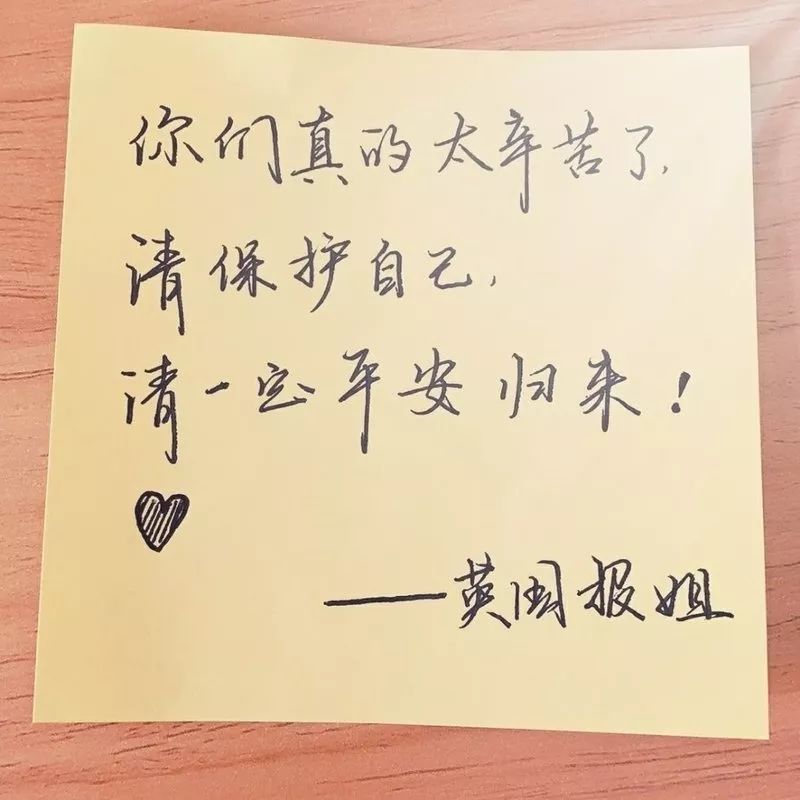 你们真的太辛苦了,
请保护自己,
请一定平安归来!
——英国报姐